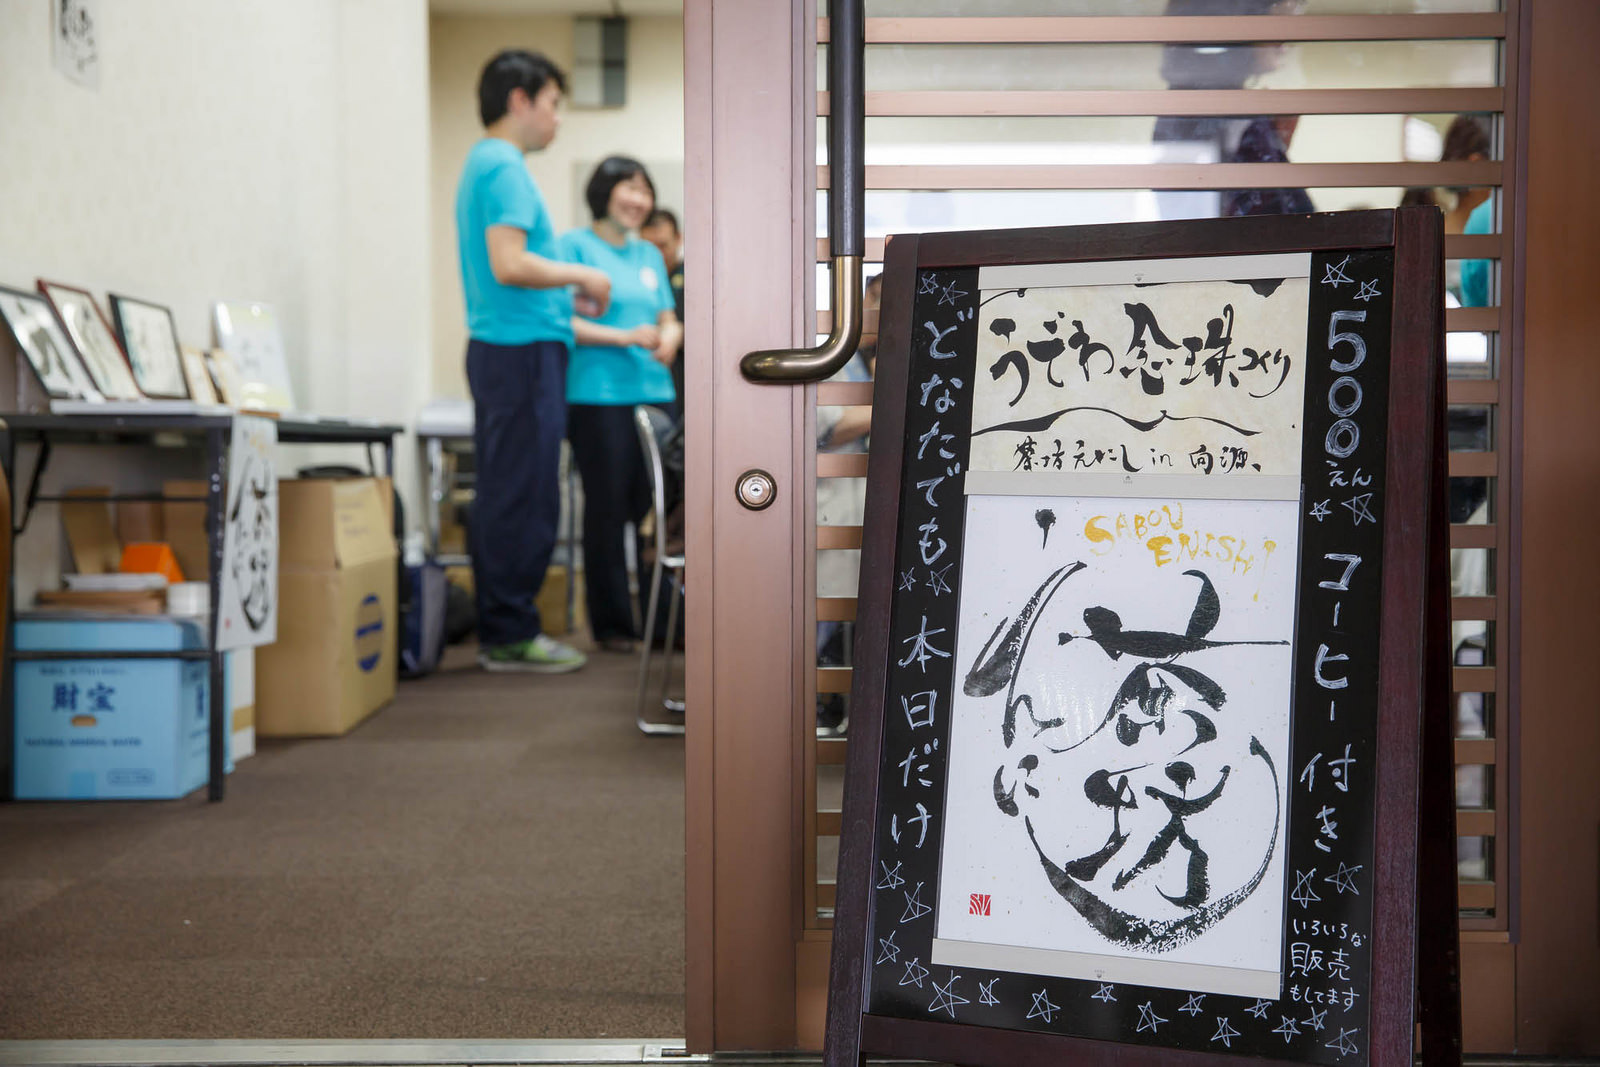 うでわ念珠づくり
茶坊えにし in 向源、
SABOU
ENISHI
茶坊
えんにし
どなたでも 本日だけ
500えん コーヒー付き
いろいろな
販売
もしてます
財宝
NATURAL MINERAL WATER
茶坊